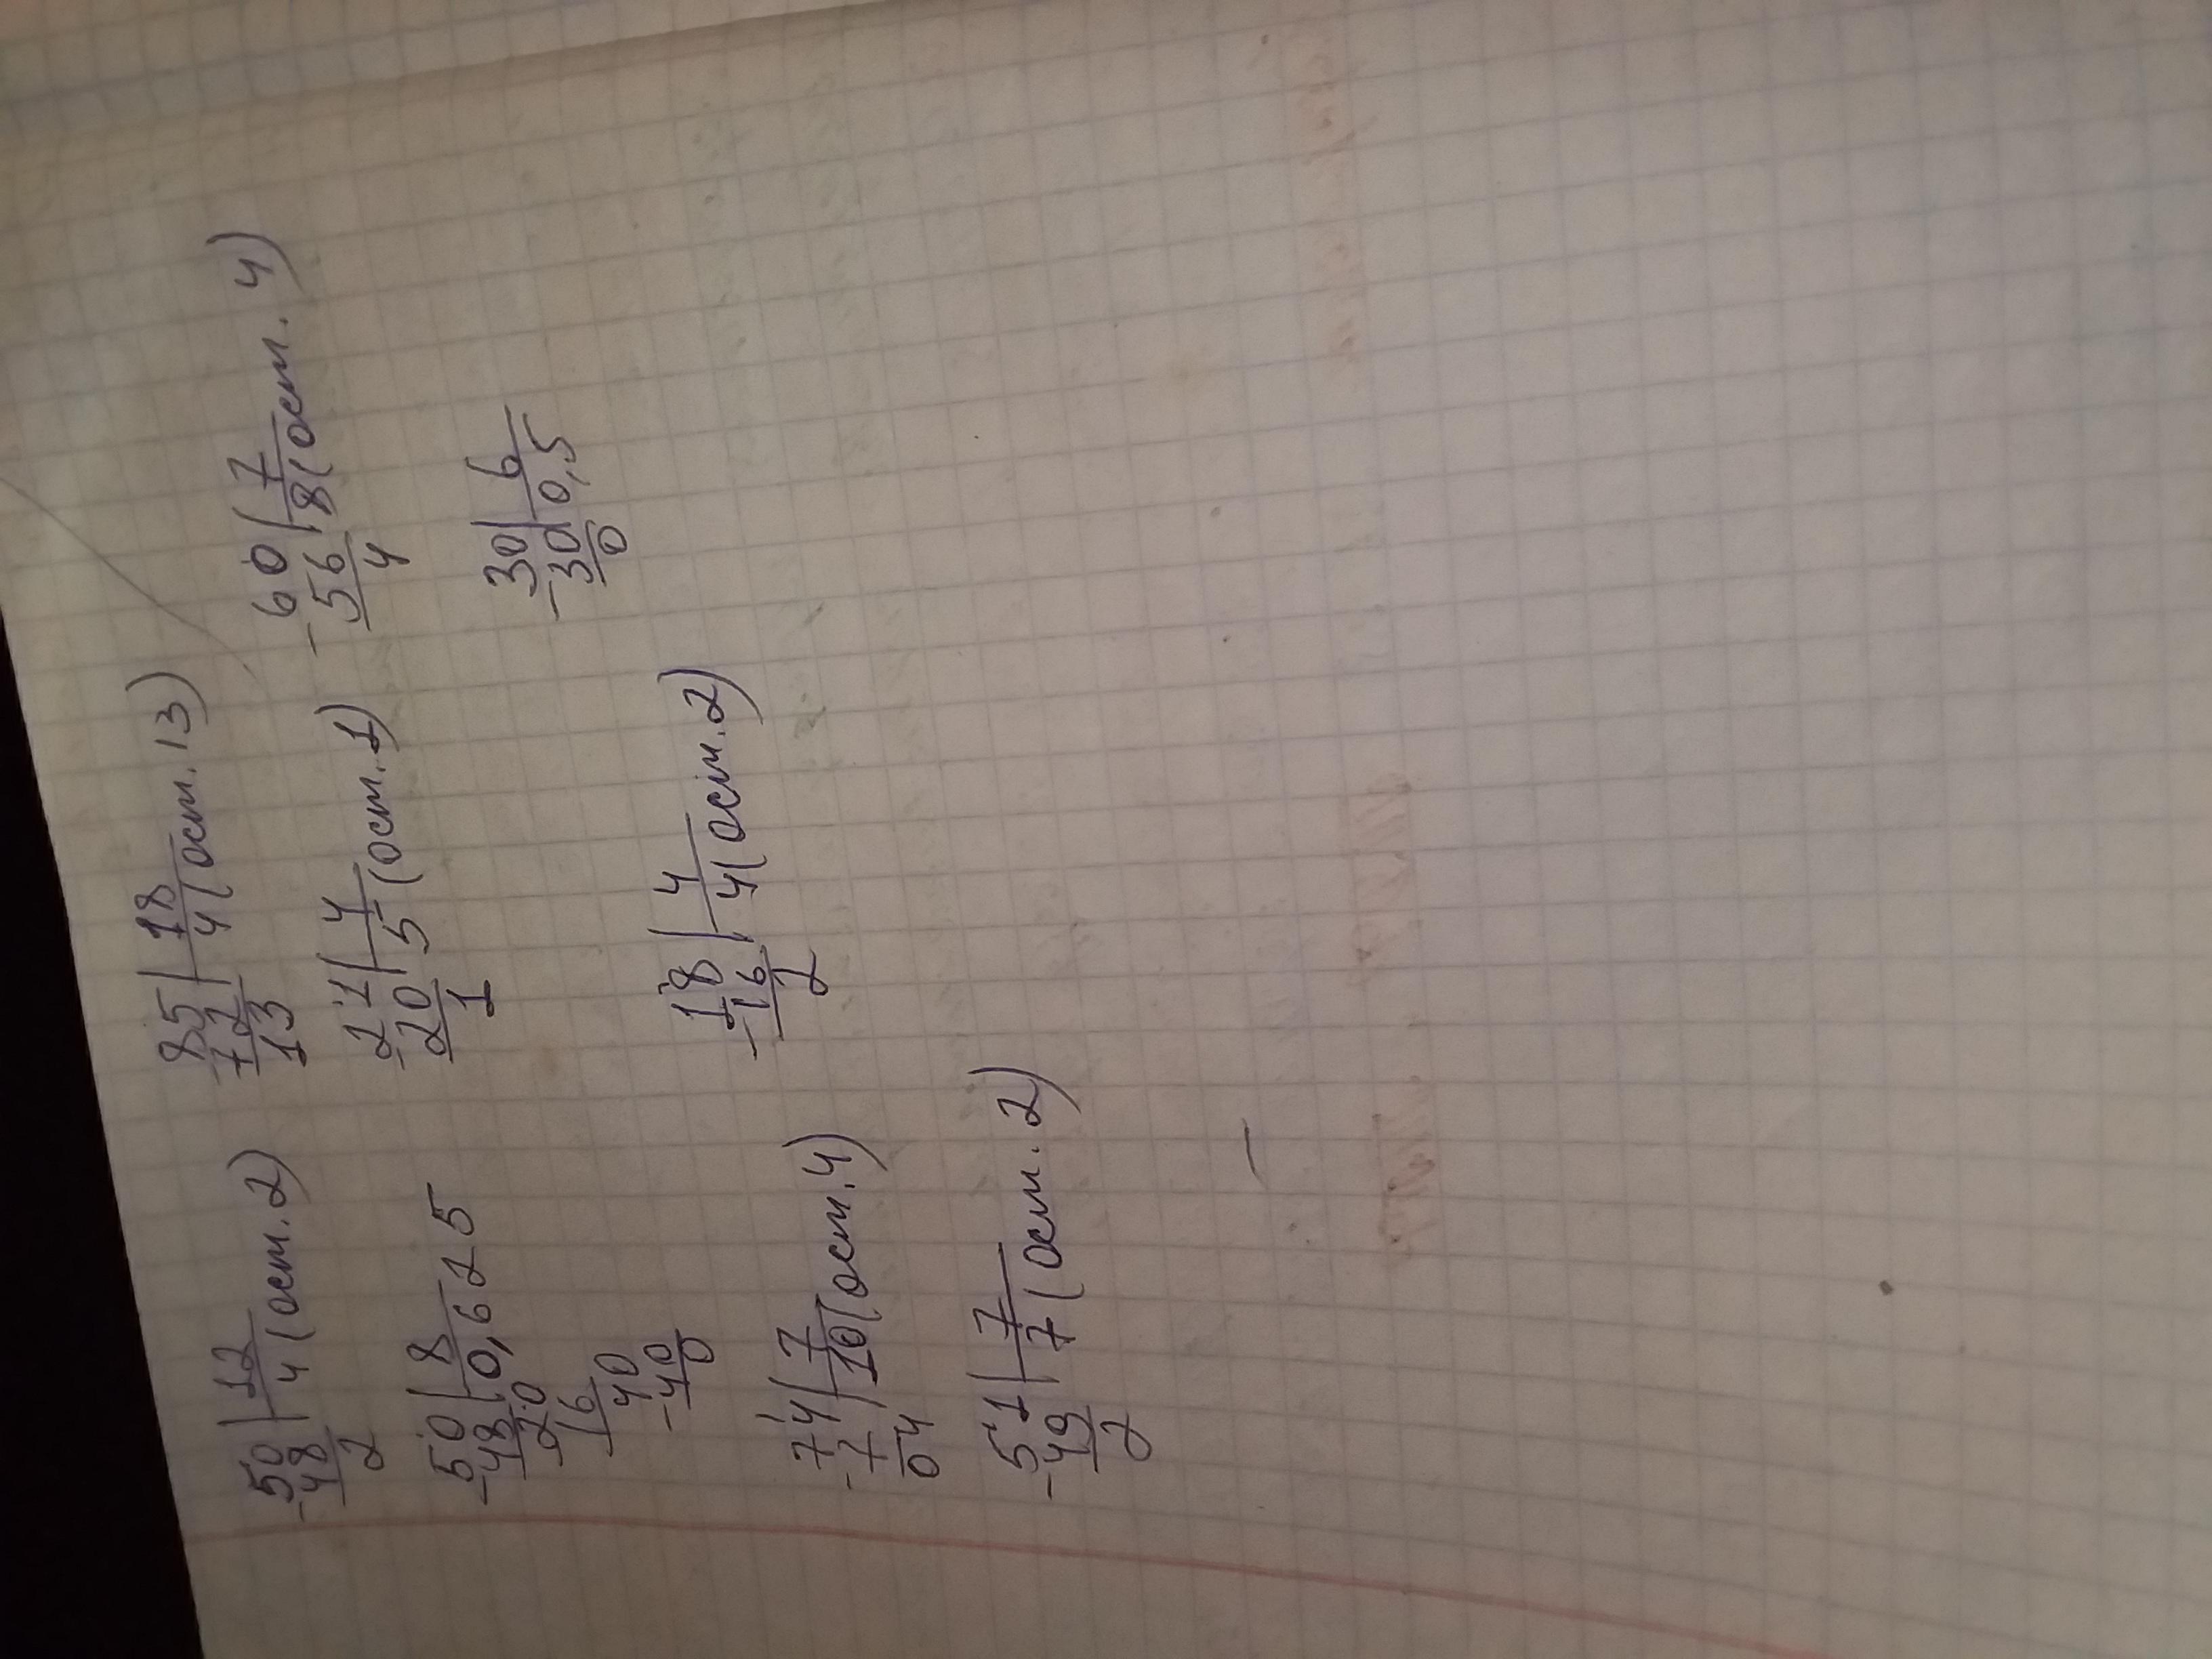 -50|12 85|18 60|7
48|4(ост.2) -72|4(ост.13) -56|8(ост. 4)
2 13 4
-50|8 21|4 30|6
48|0,625 -20|5(ост.1) -30|0,5
20 1 0
16
40
-40
0
74|7 18|4
-7|10(ост.4) -16|4(ост.2)
04 2
51|7
-49|7(ост.2)
2